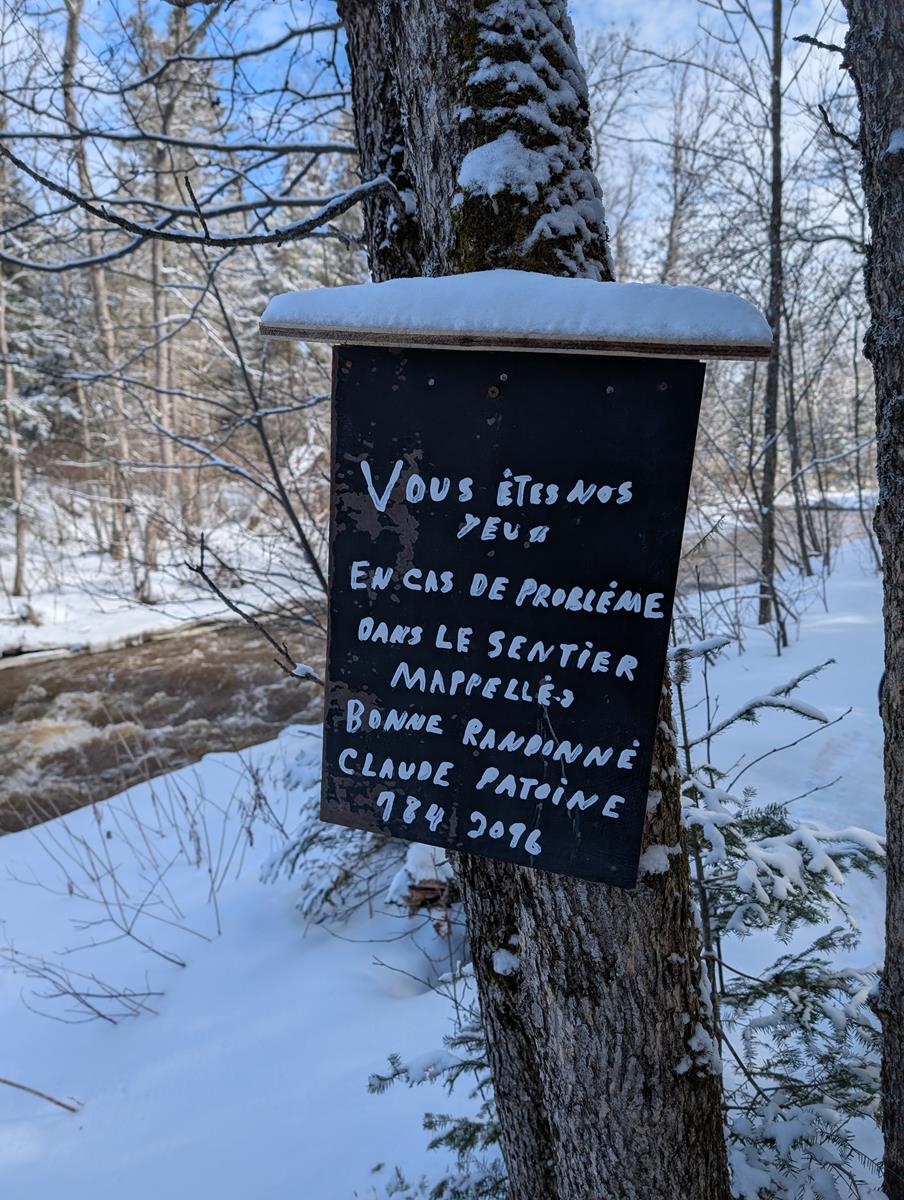 VOUS ÊTES NOS
YEUX
EN CAS DE PROBLÉME
DANS LE SENTIER
MAPPELLÉS
BONNE RANDONNÉ
CLAUDE PATOINE
784 2096